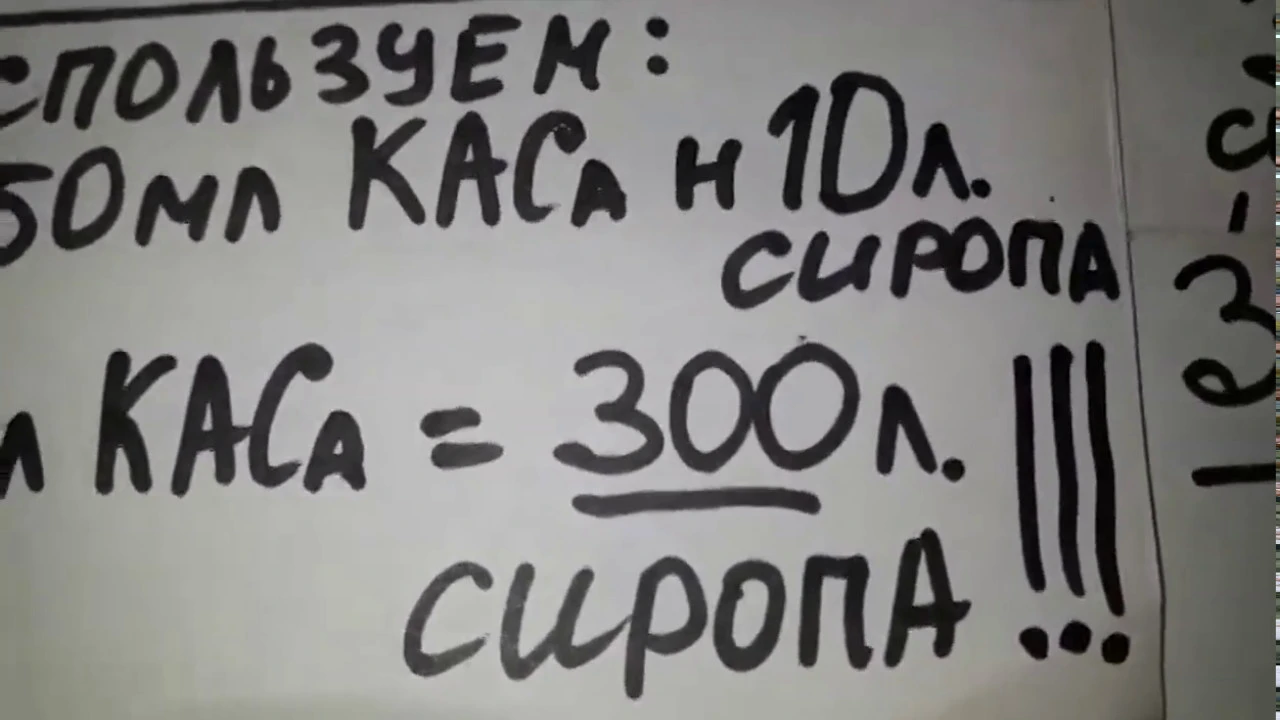 СПОЛЬЗУЕМ:
50МЛ КАСА Н 10Л.
СИРОПА
Л КАСА = 300Л. !!!
СИРОПА